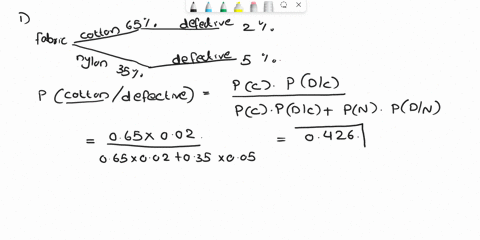 1)
fabric cotton 65%. defective 2 %.
nylon 35%. defective 5 %.
P (cotton/defective) = P(C) . P(D/C) / P(C).P(D/C) + P(N). P(D/N)
= 0.65 x 0.02. / 0.65 x 0.02 + 0.35 x 0.05 = 0.426.